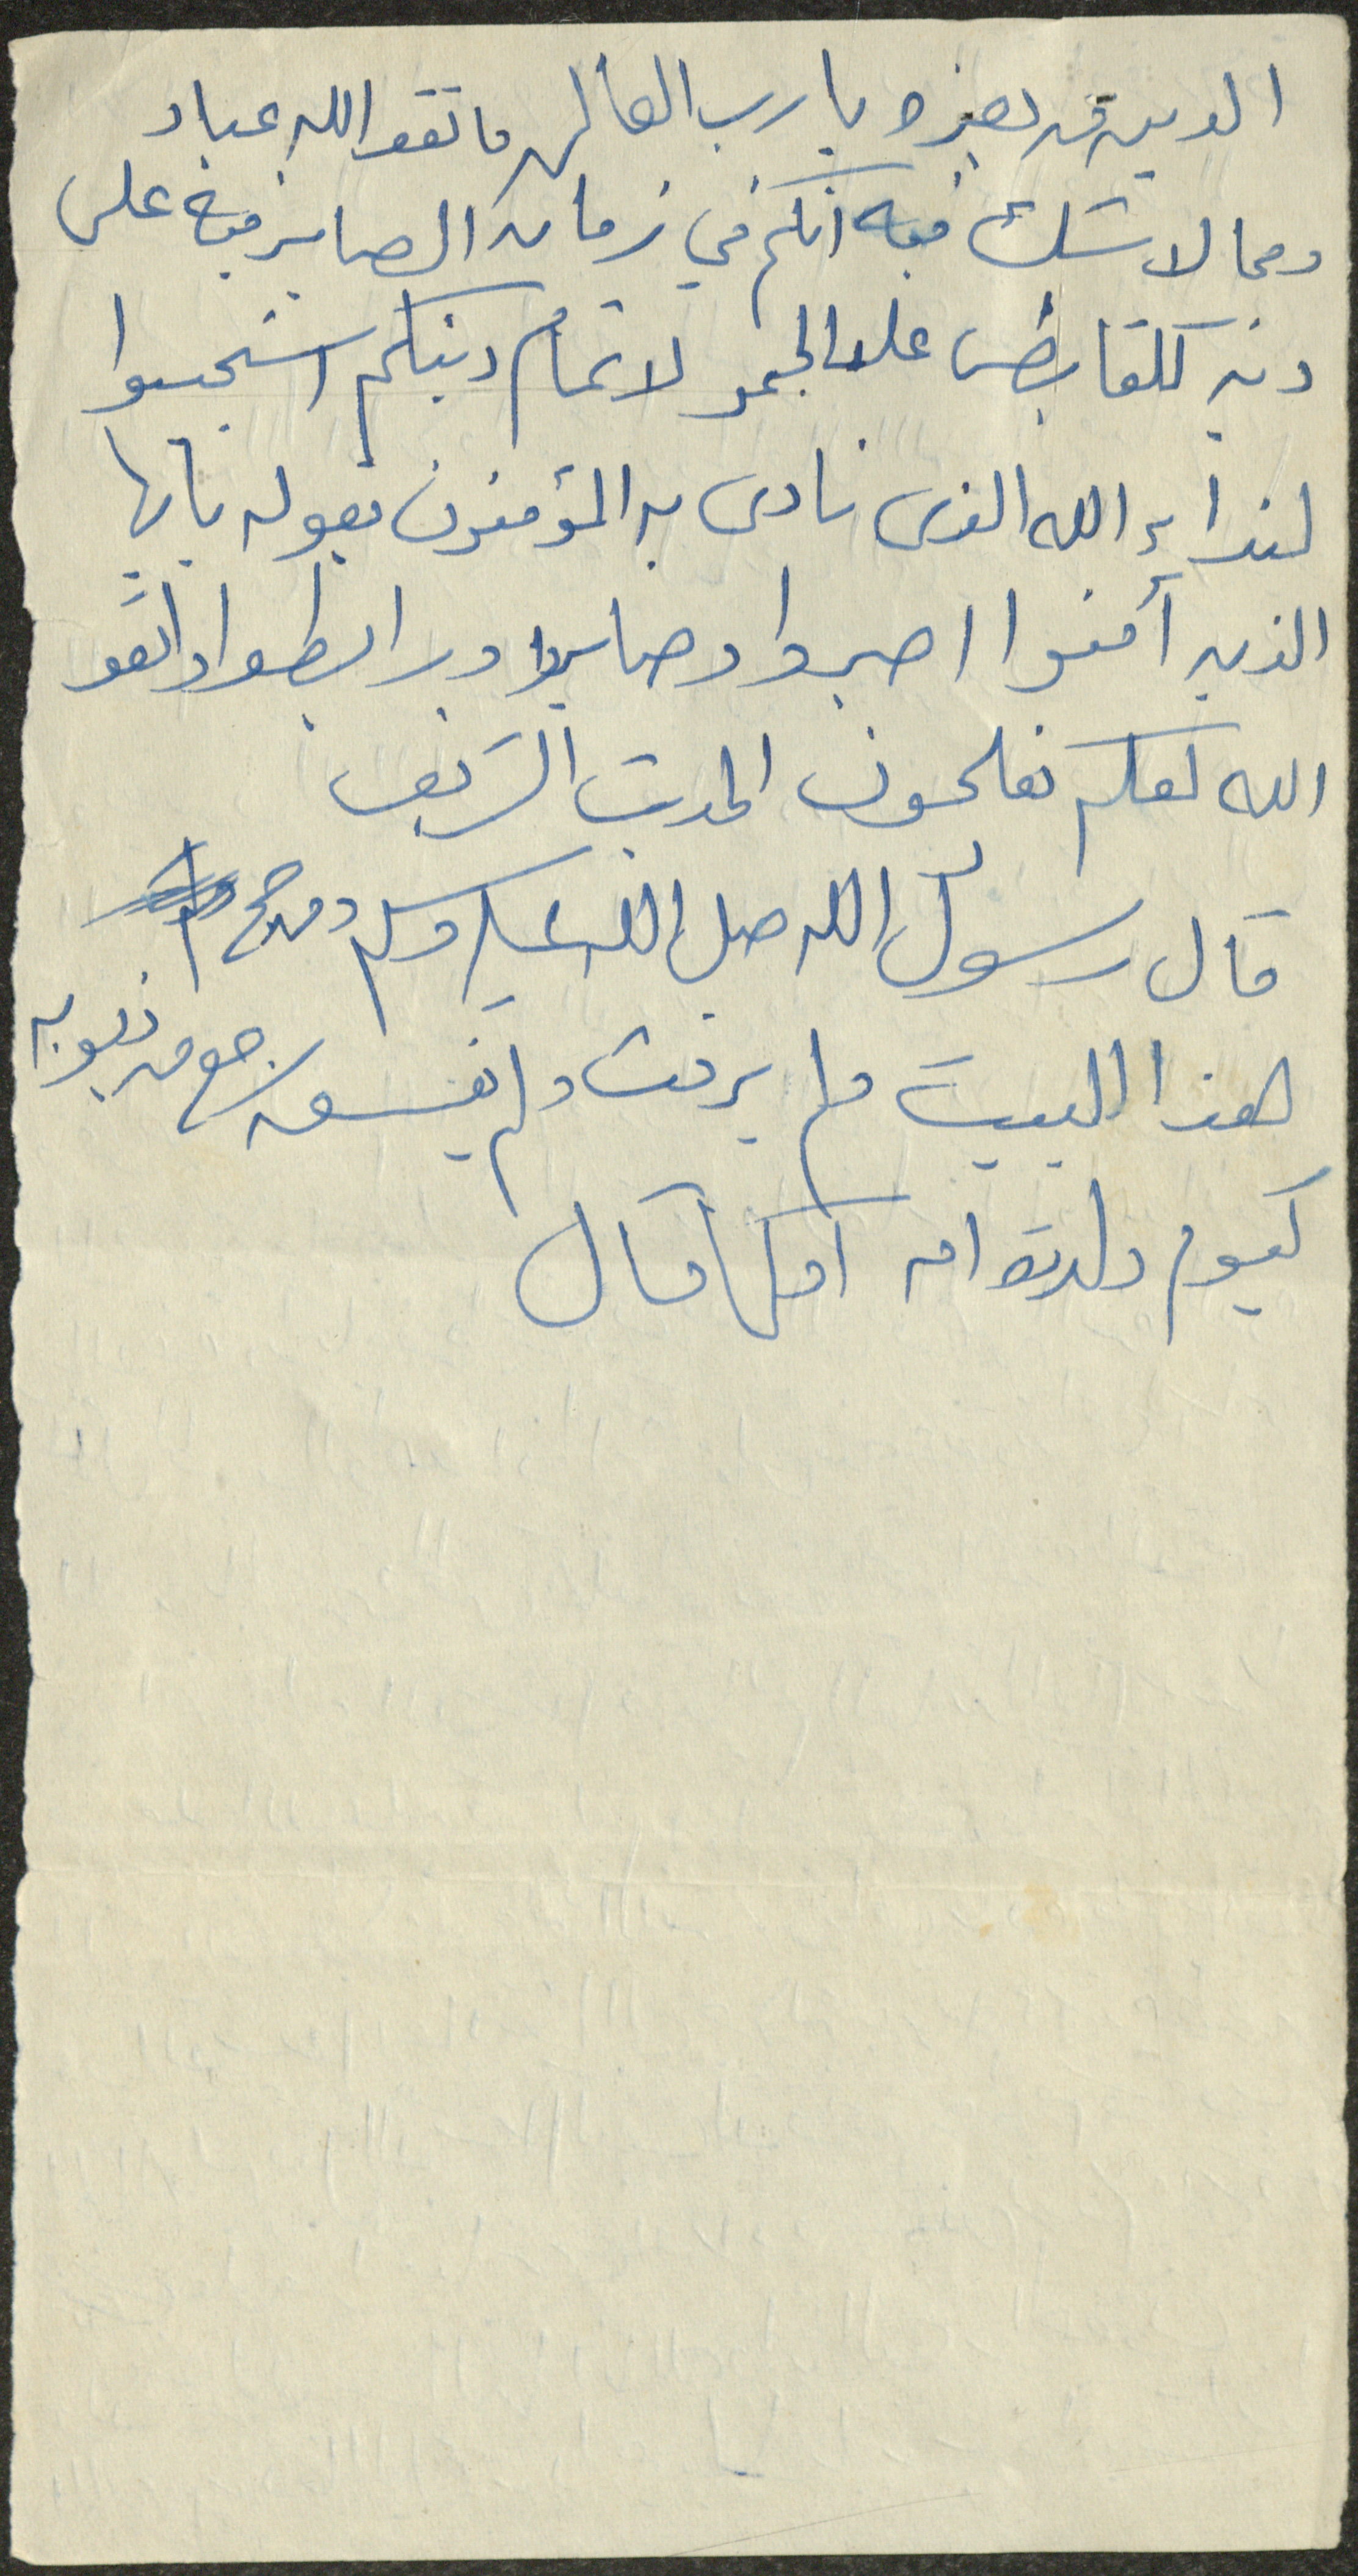 الدين من بعزه يا رب العالمين فاتقوا الله عباد
ومما لا شك فيه انكم في زمان الصابر فيه على
دينه كلقابض على الجمر لاتمام دينكم استجيبوا
لنداء الله الذي نادى به المؤمنون بقوله يايها
الذين آمنوا اصبروا وصابروا ورابطوا واتقو
الله لعلكم تفلحون الحديث الشريف
قال رسول الله صلى الله عليه وسلم ومن حج
هذا البيت ولم يرفث ولم يفسق رجع من ذنوبه
كيوم ولدته امه اوكما قال